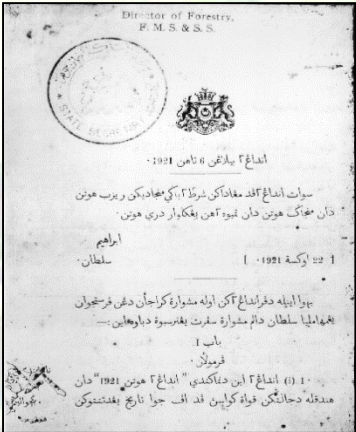 Director of Forestry,
F. M. S. & S. S.
STATE SECRETARY
انداڠ٢ بيلاڠن 6 تاهن 1921٠
سوات انداڠ٢ اڤد مڠاداکن شرط٢ باݢي منجاديکن ريزب هوتن
دان منجاݢ هوتن دان تمبوه٢هن يڠکلوار دري هوتن٠
ابراهيم
سلطان٠
[ 22 اوݢست 1921٠ ]
بهوا اينيله دفراندڠ٢کن اوله مشوارة کراجأن دڠن فرستجوان
يڠمهامليا سلطان دان مشوارة سڤرت يڠترسبوة دباوه اين:—
باب 1٠
ڤرمولأن٠
1٠ (i) انداڠ٢ اين دناماکندي "انداڠ٢ هوتن 1921" دان
هندقله دجالنکن قواة کواسڽ ڤد اف جوا تاريخ يڠدتنتوکن